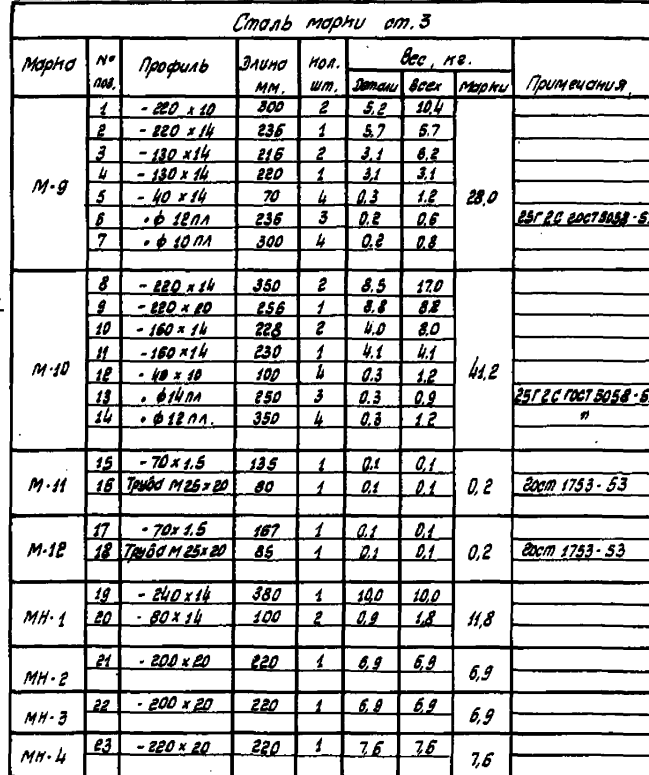 Сталь марки ст. 3
Марка № поз. Профиль Длина мм. кол. шт. Вес, кг. Примечания
Детали Всех Марки
М-9 28,0
1 - 220 x 10 300 2 5,2 10,4
2 - 220 x 14 236 1 5,7 5,7
3 - 130 x 14 216 2 3,1 6,2
4 - 130 x 14 220 1 3,1 3,1
5 - 40 x 14 70 4 0,3 1,2
6 • ϕ 12 пл 236 3 0,2 0,6 25Г2С ГОСТ 5058-5
7 • ϕ 10 пл 300 4 0,2 0,8
М-10 41,2
8 - 220 x 14 350 2 8,5 17,0
9 - 220 x 20 256 1 8,8 8,8
10 - 160 x 14 228 2 4,0 8,0
11 - 160 x 14 230 1 4,1 4,1
12 - 40 x 10 100 4 0,3 1,2
13 • ϕ 14 пл 250 3 0,3 0,9 25Г2С ГОСТ 5058-5
14 • ϕ 12 пл. 350 4 0,3 1,2 "
М-11 0,2
15 - 70 x 1.5 135 1 0,1 0,1
16 Труба М 25 x 20 80 1 0,1 0,1 Гост 1753-53
М-12 0,2
17 - 70 x 1.5 167 1 0,1 0,1
18 Труба М 25 x 20 85 1 0,1 0,1 Гост 1753-53
МН-1 11,8
19 - 240 x 14 380 1 10,0 10,0
20 - 80 x 14 100 2 0,9 1,8
МН-2 6,9
21 - 200 x 20 220 1 6,9 6,9
МН-3 6,9
22 - 200 x 20 220 1 6,9 6,9
МН-4 7,6
23 - 220 x 20 220 1 7,6 7,6